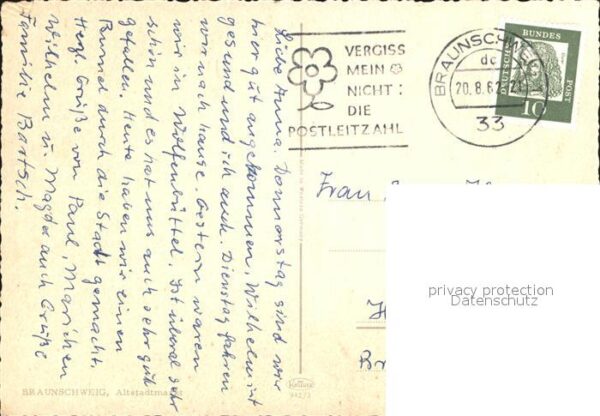 Liebe Anna. Donnerstag sind wir
hier gut angekommen, Wilhelm ist
gesund und ich auch. Dienstag fahren
wir nach Hause. Gestern waren
wir in Wolfenbüttel. Ist überal sehr
schön und es hat uns auch sehr gut
gefallen. Heute haben wir einen
Bumel durch die Stadt gemacht.
Herzl. Grüße von Paul, Mariechen
Wilhelm u. Magda auch Grüße
Familie Bartsch.
VERGISS
MEIN
NICHT:
DIE
POSTLEITZAHL
BRAUNSCHWEIG
dc
20.8.62
33
BUNDES
POST
DEUTSCHE
10
Frau
privacy protection
Datenschutz
BRAUNSCHWEIG, Altstadtma